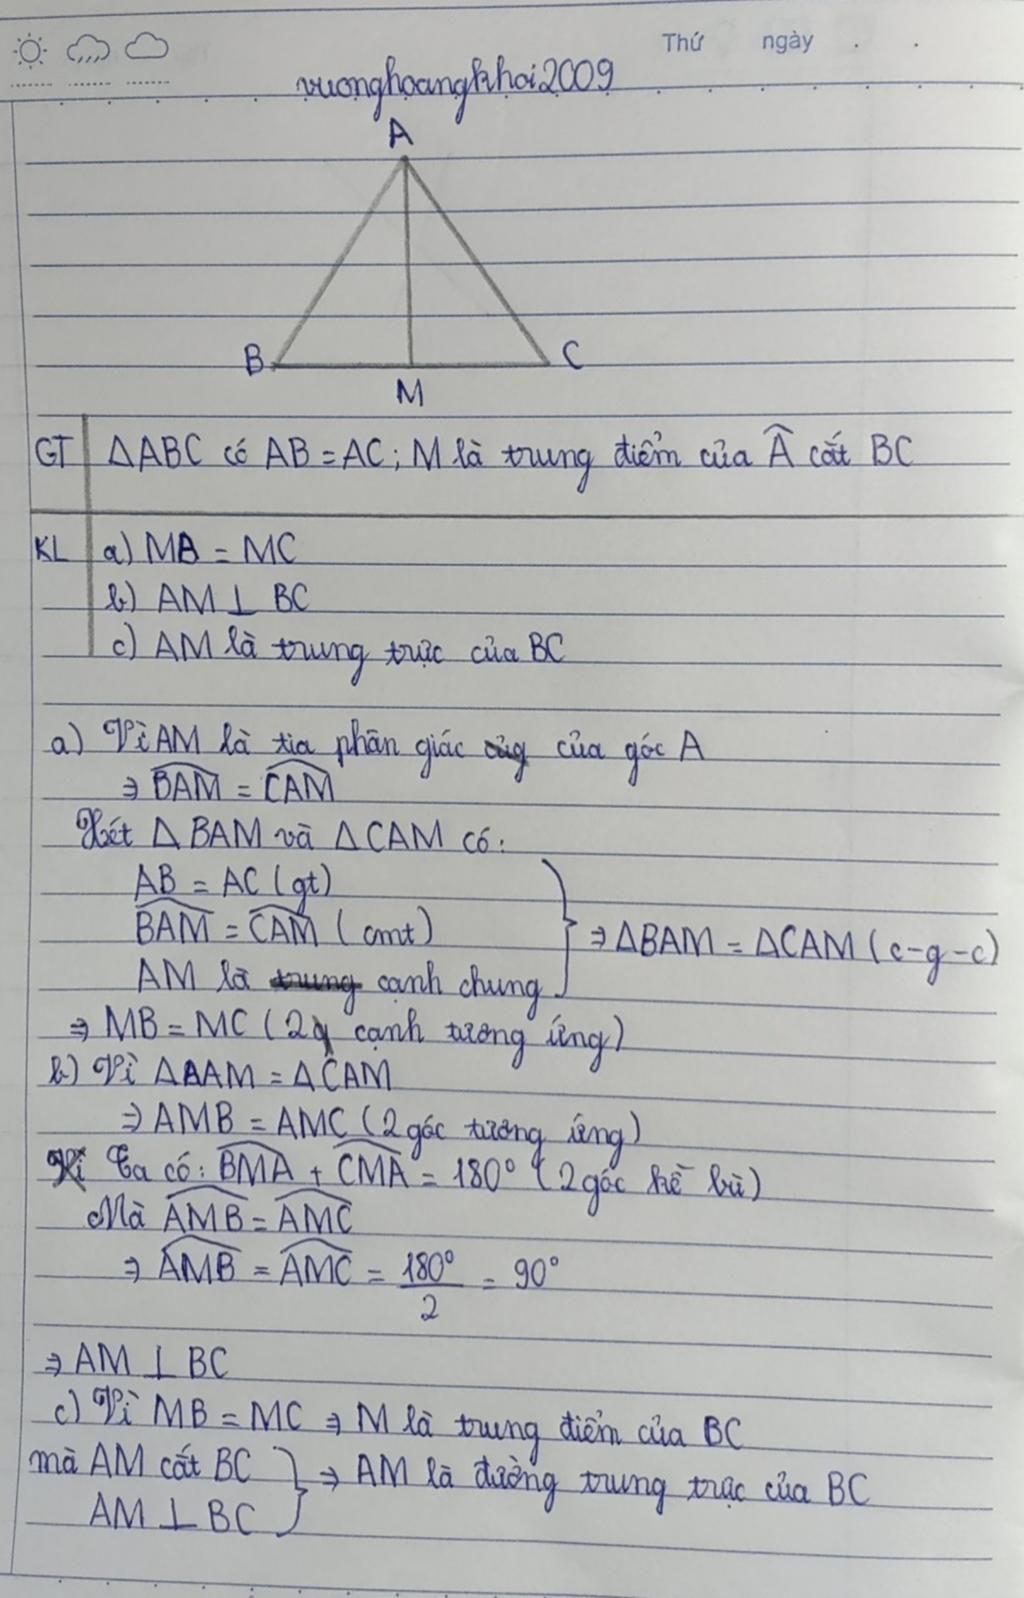 Thứ ngày
vuonghoangkhoi2009
A
B
C
M
GT ΔABC có AB = AC; M là trung điểm của Â cắt BC
KL a) MB = MC
b) AM ⊥ BC
c) AM là trung trực của BC
a) Vì AM là tia phân giác của góc A
⇒ \widehat{BAM} = \widehat{CAM}
Xét ΔBAM và ΔCAM có:
AB = AC (gt)
\widehat{BAM} = \widehat{CAM} (cmt)
AM là cạnh chung
} ⇒ ΔBAM = ΔCAM (c-g-c)
⇒ MB = MC (2 cạnh tương ứng)
b) Vì ΔAAM = ΔCAM
⇒ AMB = AMC (2 góc tương ứng)
Ta có: \widehat{BMA} + \widehat{CMA} = 180° (2 góc kề bù)
Mà \widehat{AMB} = \widehat{AMC}
⇒ \widehat{AMB} = \widehat{AMC} = 180°/2 = 90°
⇒ AM ⊥ BC
c) Vì MB = MC ⇒ M là trung điểm của BC
mà AM cắt BC } ⇒ AM là đường trung trực của BC
AM ⊥ BC